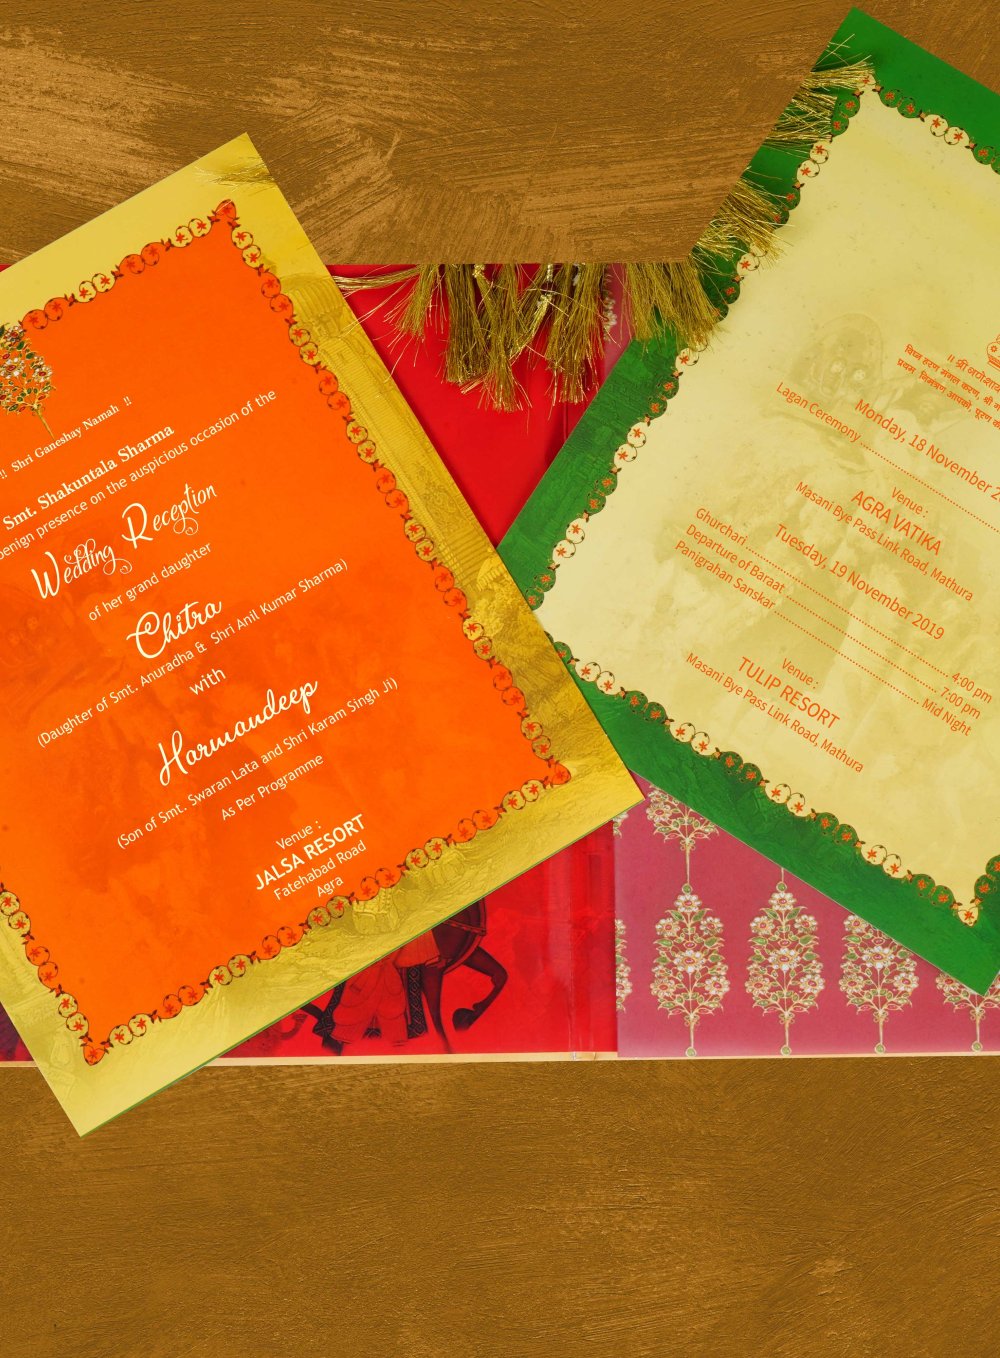 !! Shri Ganeshay Namah !!
Smt. Shakuntala Sharma
benign presence on the auspicious occasion of the
Wedding Reception
of her grand daughter
Chitra
(Daughter of Smt. Anuradha & Shri Anil Kumar Sharma)
with
Harmandeep
(Son of Smt. Swaran Lata and Shri Karam Singh Ji)
As Per Programme
Venue :
JALSA RESORT
Fatehabad Road
Agra
॥ श्री गणेशाय
विघ्न हरण मंगल करण, श्री
प्रथम निमंत्रण आपको, पूरण
Monday, 18 November
Lagan Ceremony
Venue :
AGRA VATIKA
Masani Bye Pass Link Road, Mathura
Tuesday, 19 November 2019
Ghurchari 4:00 pm
Departure of Baraat 7:00 pm
Panigrahan Sanskar Mid Night
Venue :
TULIP RESORT
Masani Bye Pass Link Road, Mathura